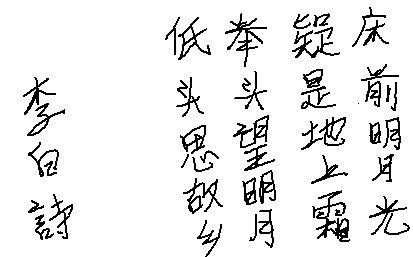 床前明月光
疑是地上霜
举头望明月
低头思故乡
李白詩